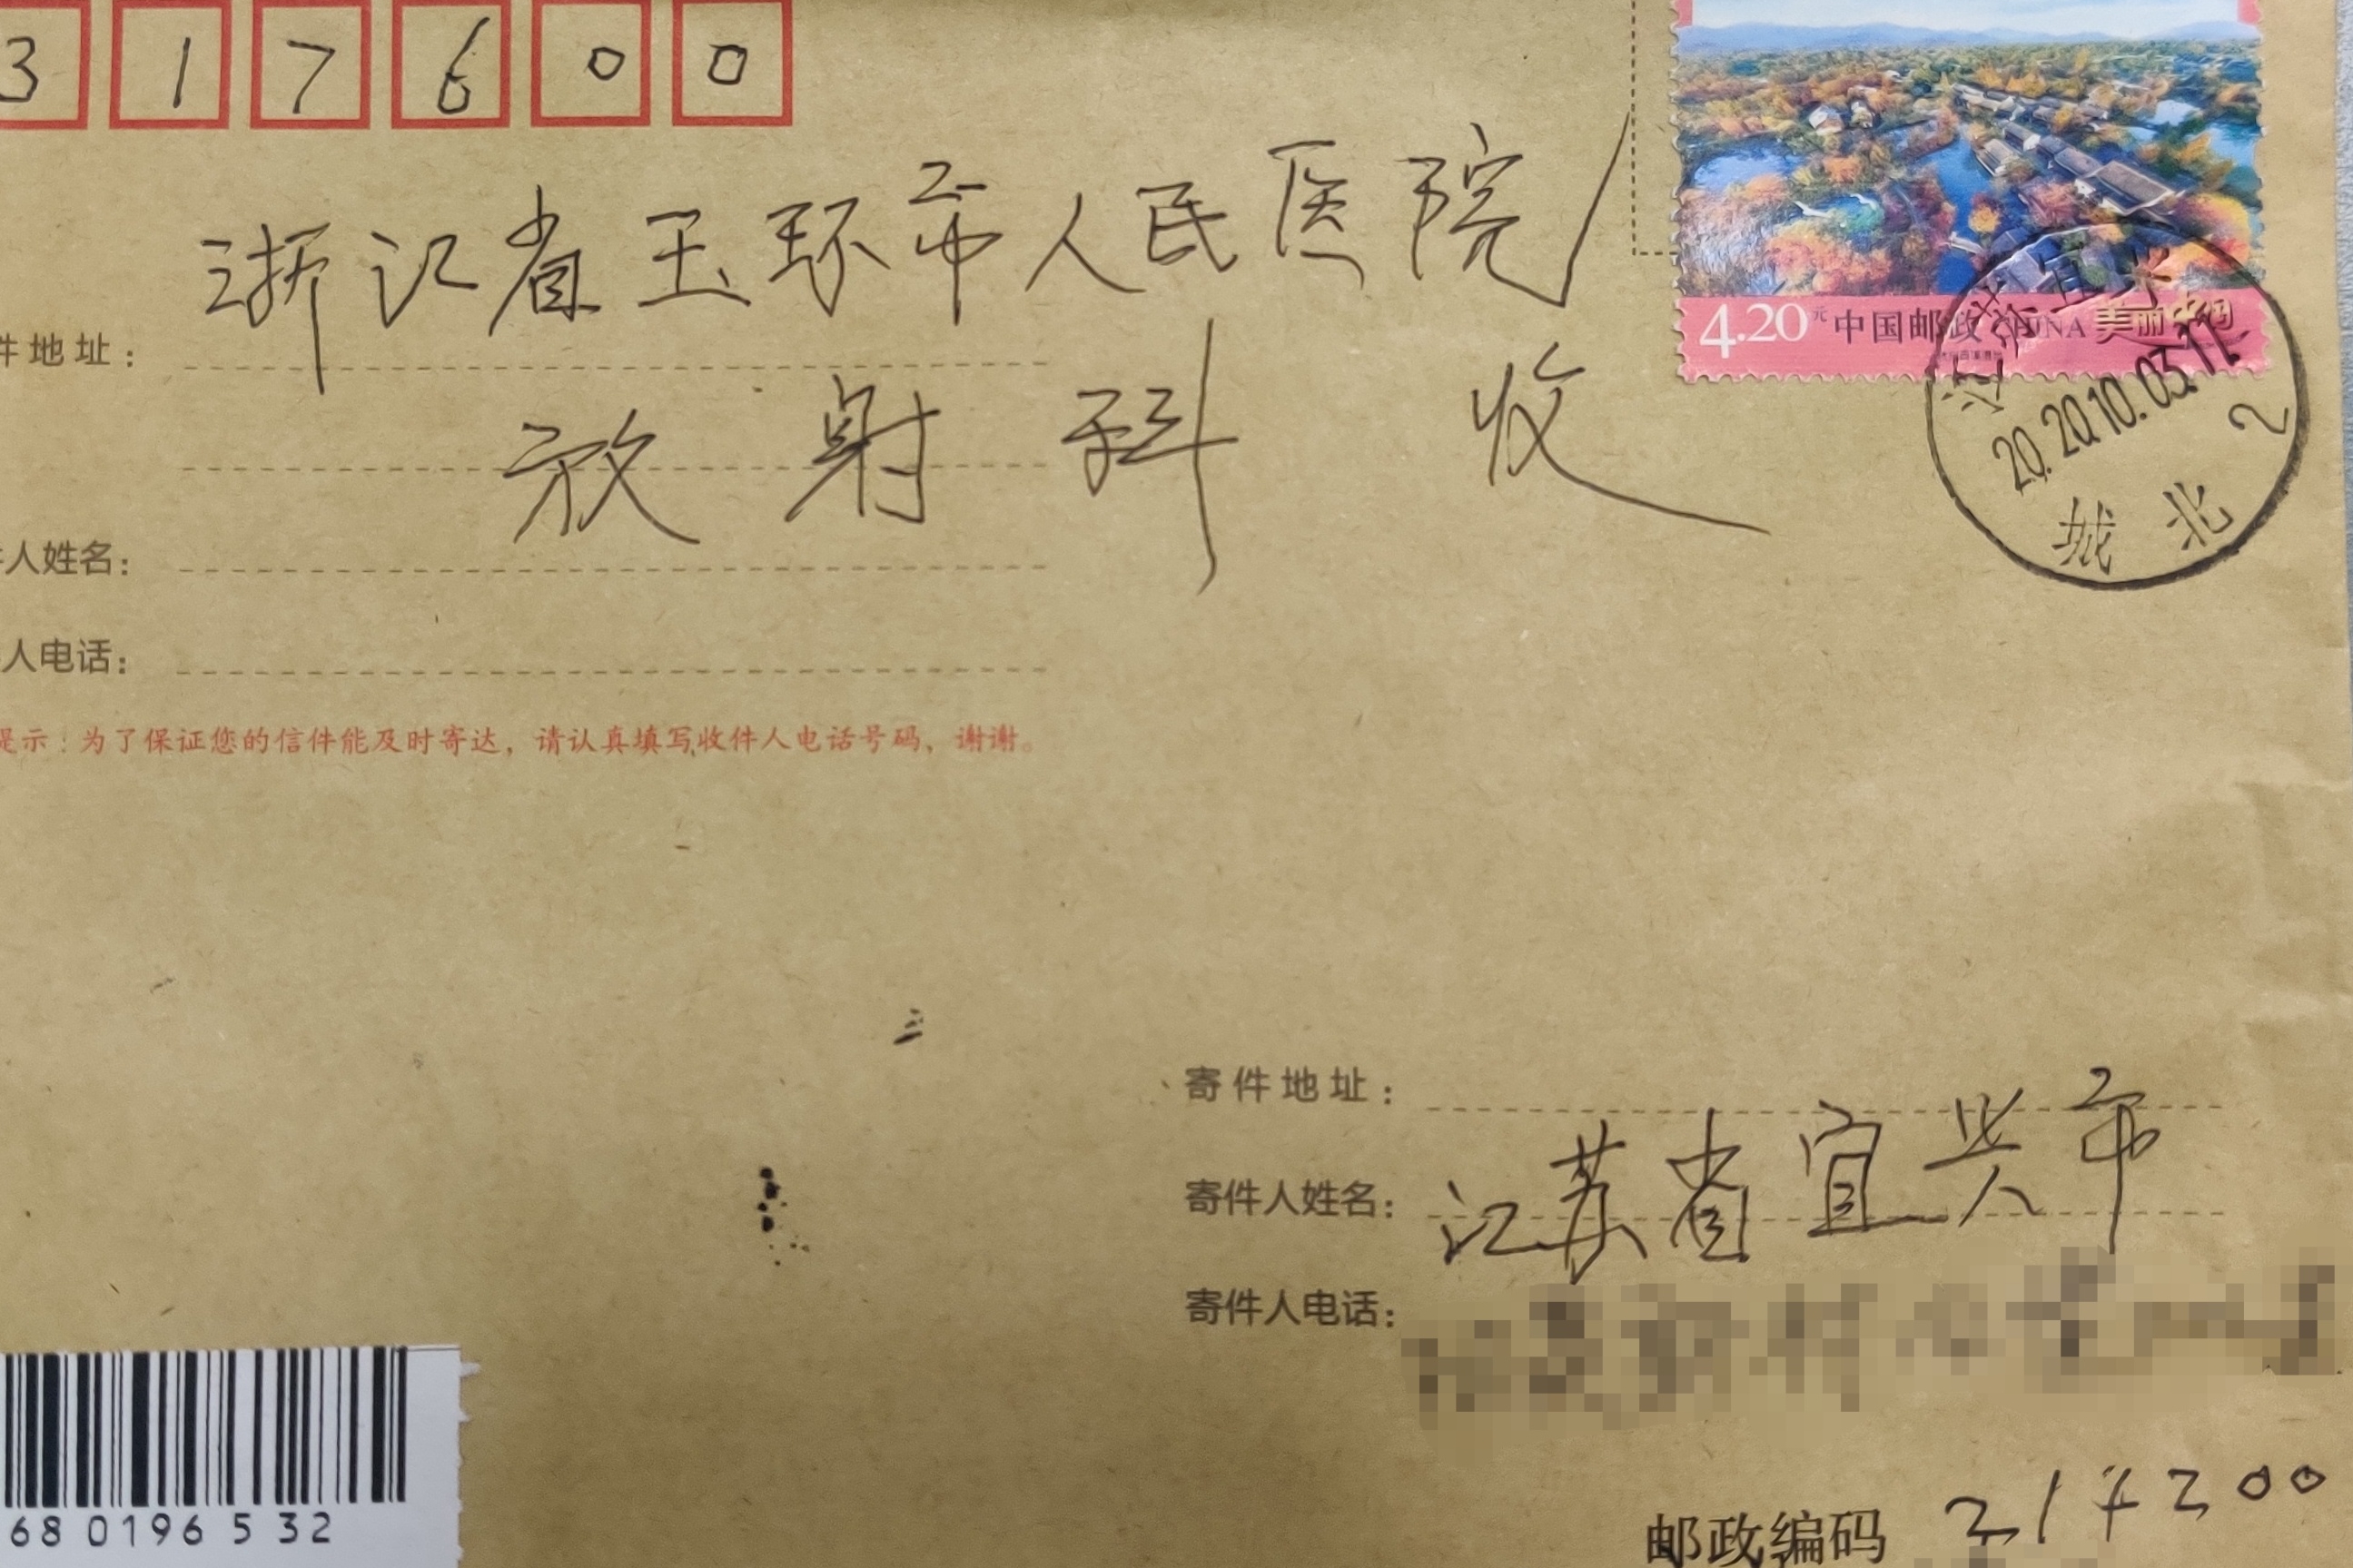 317600
浙江省玉环市人民医院
件地址：
放射科 收
人姓名：
人电话：
提示：为了保证您的信件能及时寄达，请认真填写收件人电话号码，谢谢。
4.20元 中国邮政 CHINA 美丽中国
江苏宜兴
20.20.10.03.11
2
城北
寄件地址：
江苏省宜兴市
寄件人姓名：
寄件人电话：
邮政编码 214200
680196532